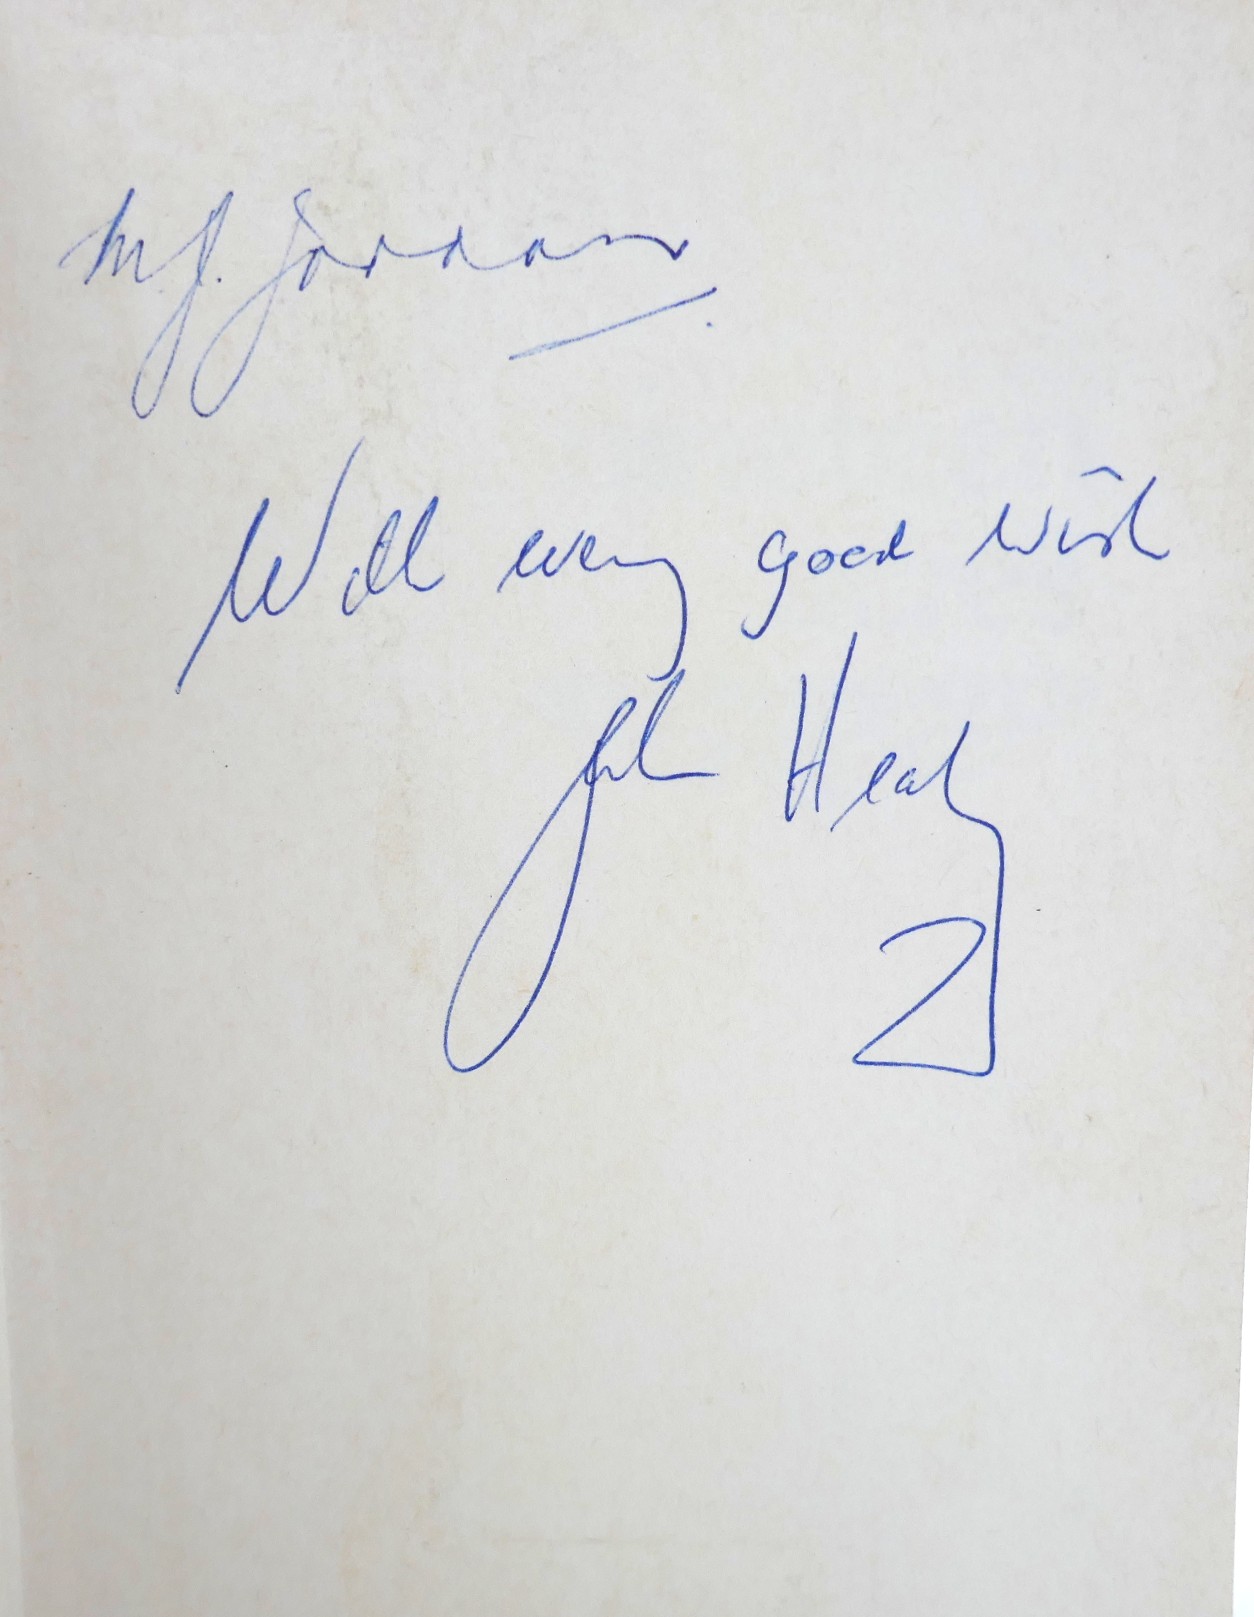 M J. Jordan
With every good wish
John Healy